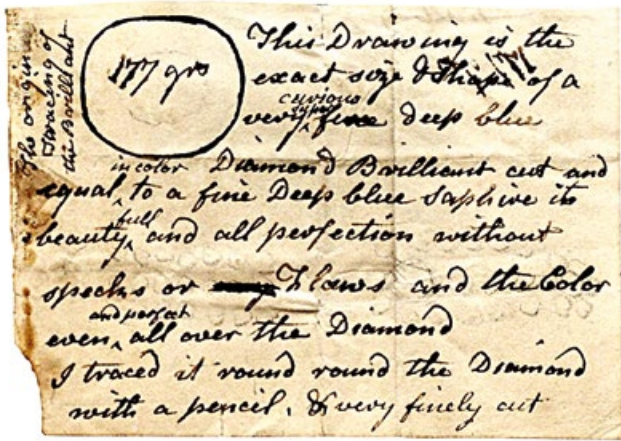 The original
tracing of
the Brilliant
177 grs
This Drawing is the
exact size & Shape of a
curious
very super fine deep blue
in color Diamond Brilliant cut and
equal to a fine Deep blue Saphire its
full
beauty and all perfection without
specks or any Flaws and the Color
and perfect
even all over the Diamond
I traced it round round the Diamond
with a pencil, & very finely cut